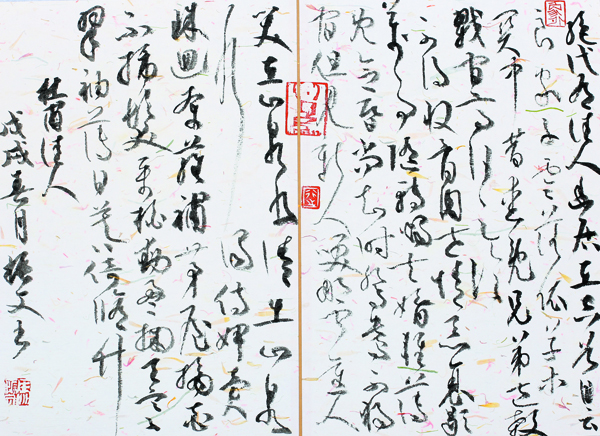 絕代有佳人幽居在空谷自云
良家子零落依草木
關中昔喪亂兄弟遭殺
戮官高何足論
不得收骨肉世情惡衰歇
萬事隨轉燭夫婿輕薄
兒合昏尚知時鴛鴦不獨
宿但見新人笑那聞舊人
哭在山泉水清出山泉
水濁侍婢賣
珠迴牽蘿補茅屋摘花
不插髮采柏動盈掬天寒
翠袖薄日暮倚修竹
杜甫佳人
戊戌春月振文書